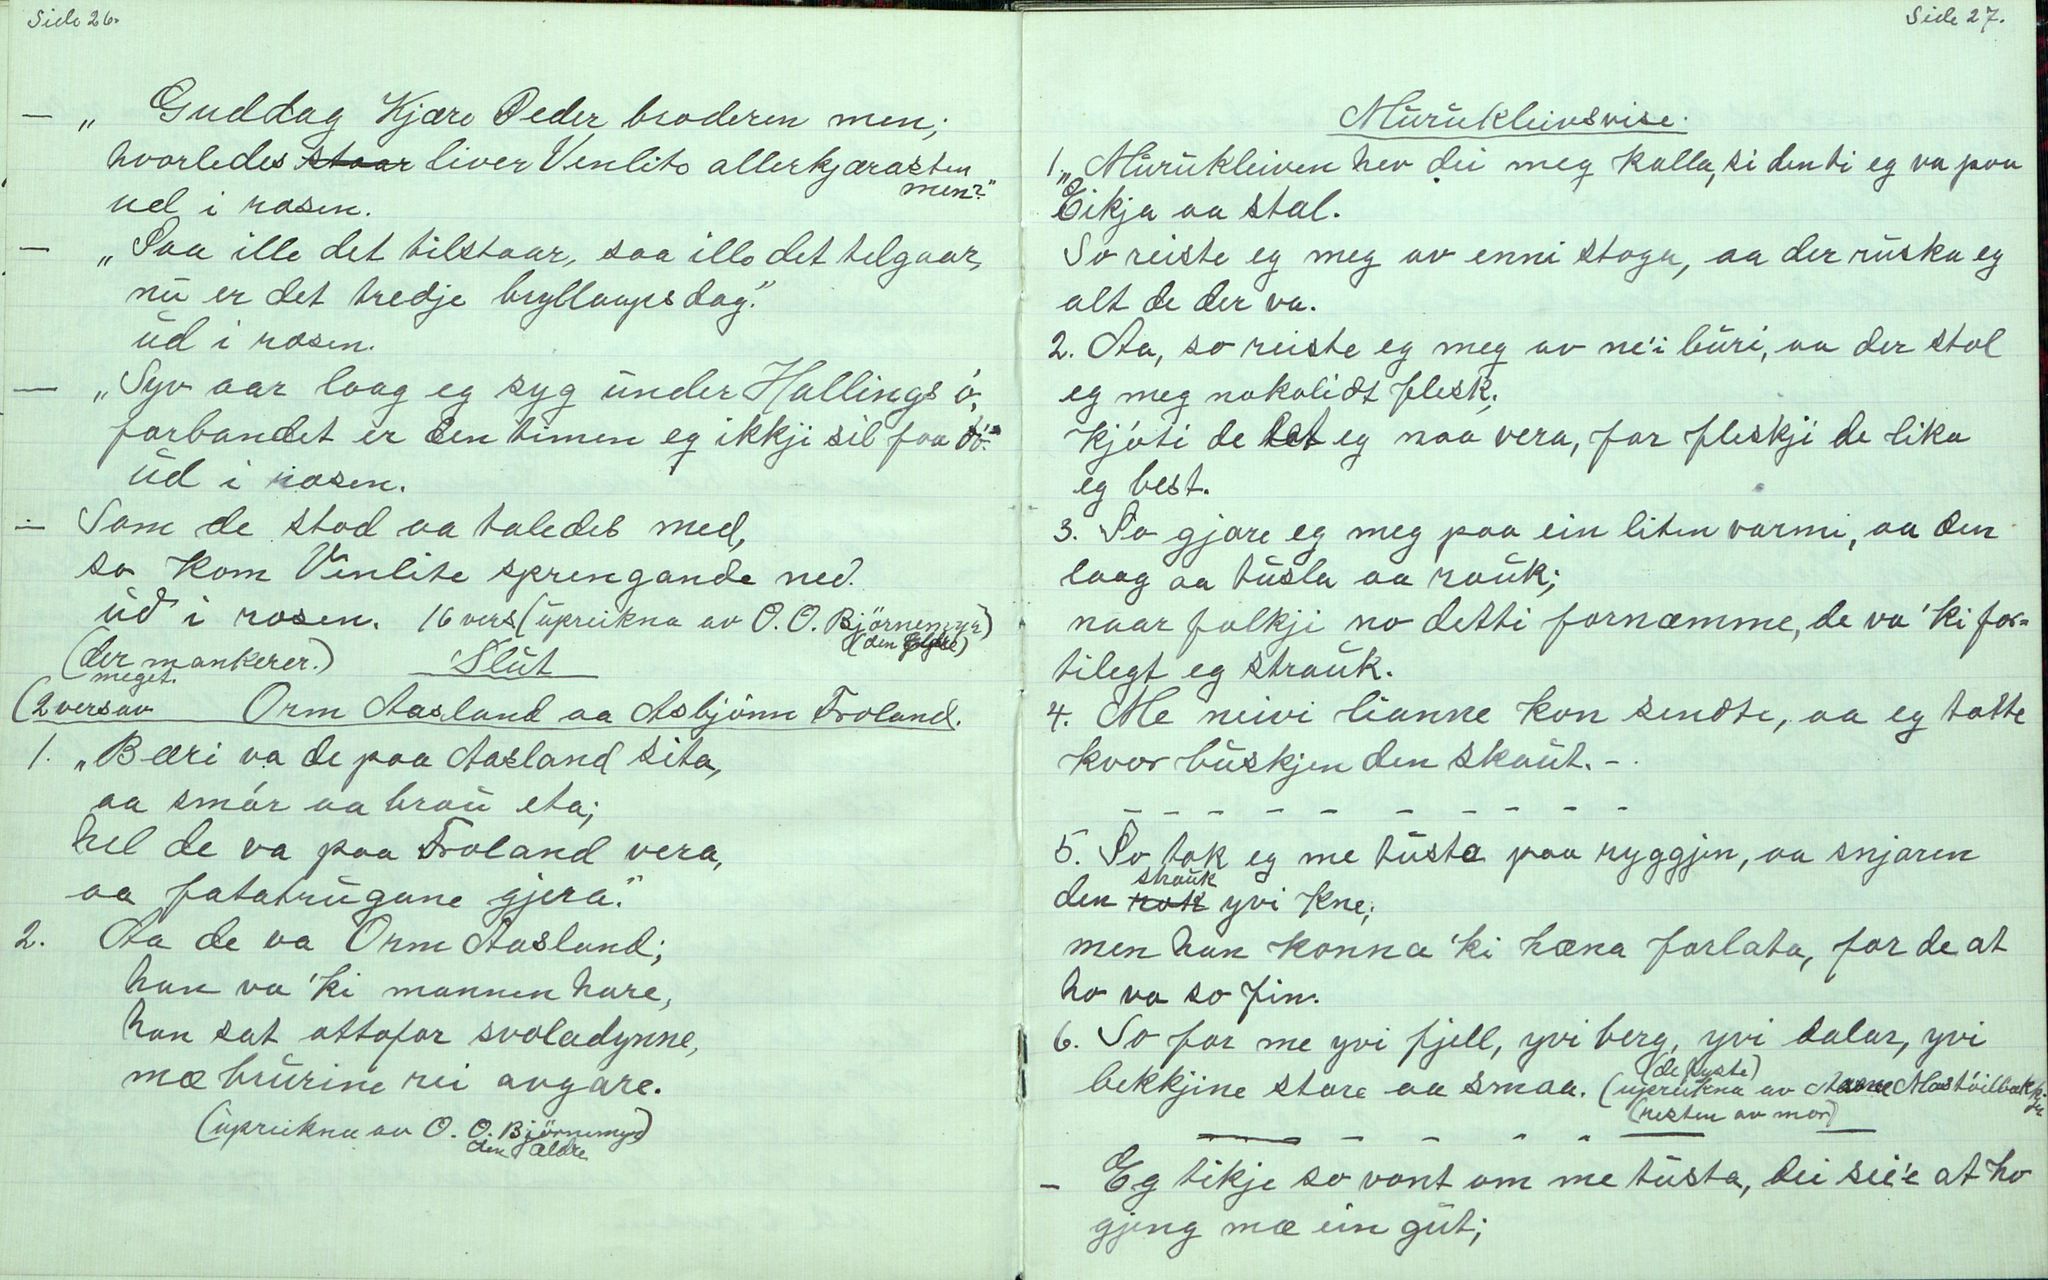 Side 26.
— „ Guddag Kjære Peder broderen men;
hvorledes staar liver Venlite allerkjærasten
men?"
ud i rosen.
— „Saa ille det tilstaar, saa ille det telgaar,
nu er det tredje bryllaupsdag."
ud i rosen.
— „Syv aar laag eg syg under Hallings ó,
forbandet er den timen eg ikkji sil faa dó."
ud i rosen.
— Som de stod aa taledes med,
so kom Venlite sprengande ned.
ud i rosen. 16 vers (upreikna av O. O. Björnemyr)
(den Eldre)
(der mankerer.) Slut
meget.
(2 vers av Orm Aasland aa Asbjönn Froland.
1. „Bæri va de paa Aasland sita,
aa smór aa brau eta;
hel de va paa Froland vera,
aa fatatrugane gjera."
2. Aa de va Orm Aasland;
han va 'ki mannen hare,
han sat attafor svoladynne,
mæ brurine rei avgare.
(upreikna av O. O. Björnemyr)
den Ældre
Side 27.
Murukleivsvise.
1. „Murukleiven hev dei meg kalla, si den ti eg va paa
Eikja aa stal.
So reiste eg meg av enni stoga, aa der ruska eg
alt de der va.
2. Aa, so reiste eg meg av ne'i buri, aa der stol
eg meg nokolidt flesk;
kjóti de let eg naa vera, for fleskji de lika
eg best.
3. So gjore eg meg paa ein liten varmi, aa den
laag aa tusla aa rauk;
naar folkji no detti fornæmme, de va 'ki for-
tilegt eg strauk.
4. Me neivi lianne kon sendte, aa eg totte
kvor buskjen den skaut. -
- - - - - - - - - -
5. So tok eg me tusta paa ryggjen, aa snjaren
strauk
den rok yvi kne;
men han konna 'ki hæna forlata, for de at
ho va so fin.
6. So for me yvi fjell, yvi berg, yvi dalar, yvi
(de fyste)
bekkjine store aa smaa. (upreikna av
(resten av mor)
- - - -
- Eg tikje so vont om me tusta, dei sei'e at ho
gjeng mæ ein gut;